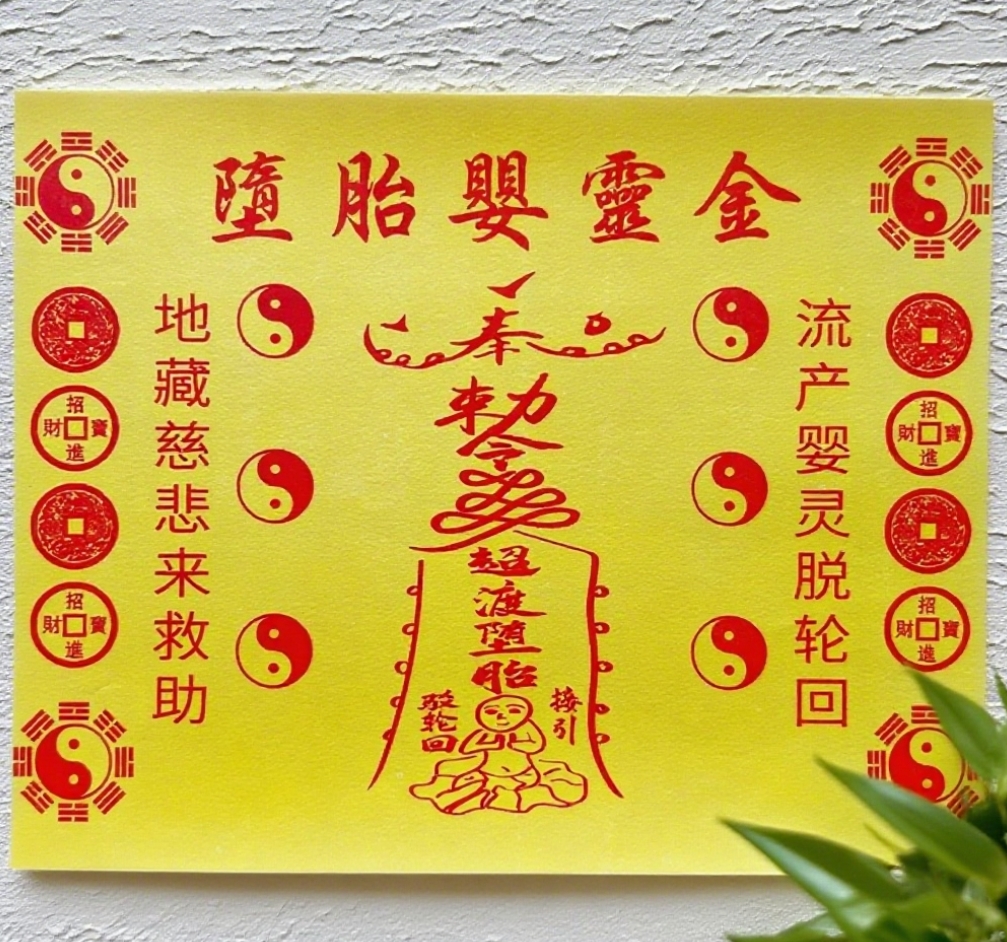 墮胎嬰靈金
流产婴灵脱轮回
地藏慈悲来救助
奉
勅令
超渡堕胎
接引
轮回
招財進寶
招財進寶
招財進寶
招財進寶